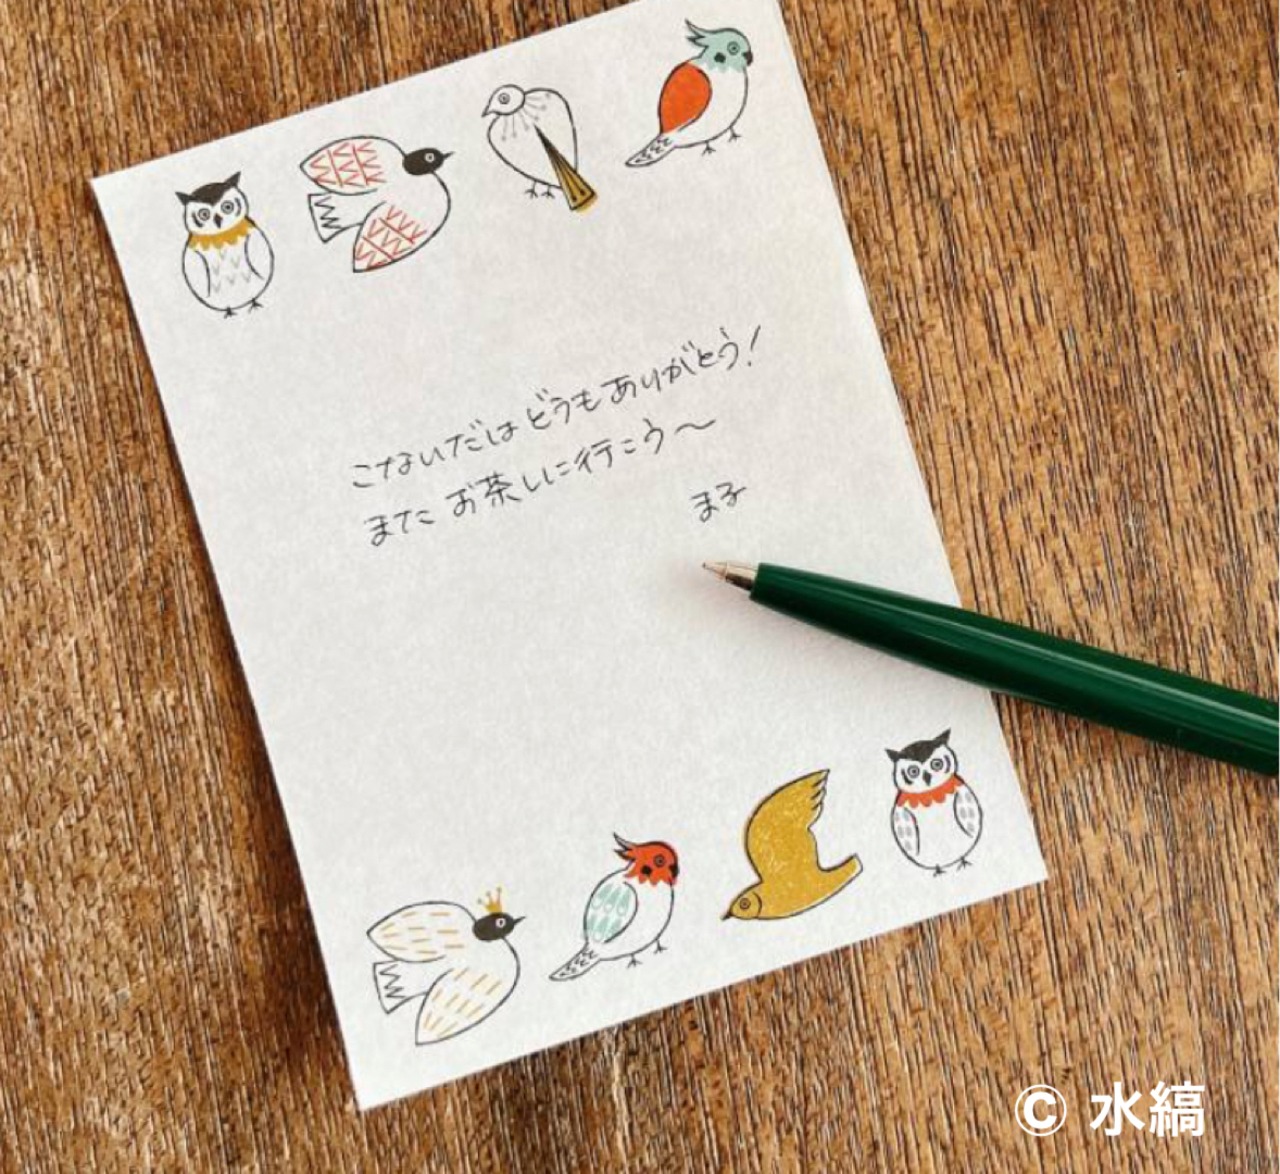 こないだはどうもありがとう!
またお茶しに行こう〜
まる
© 水縞